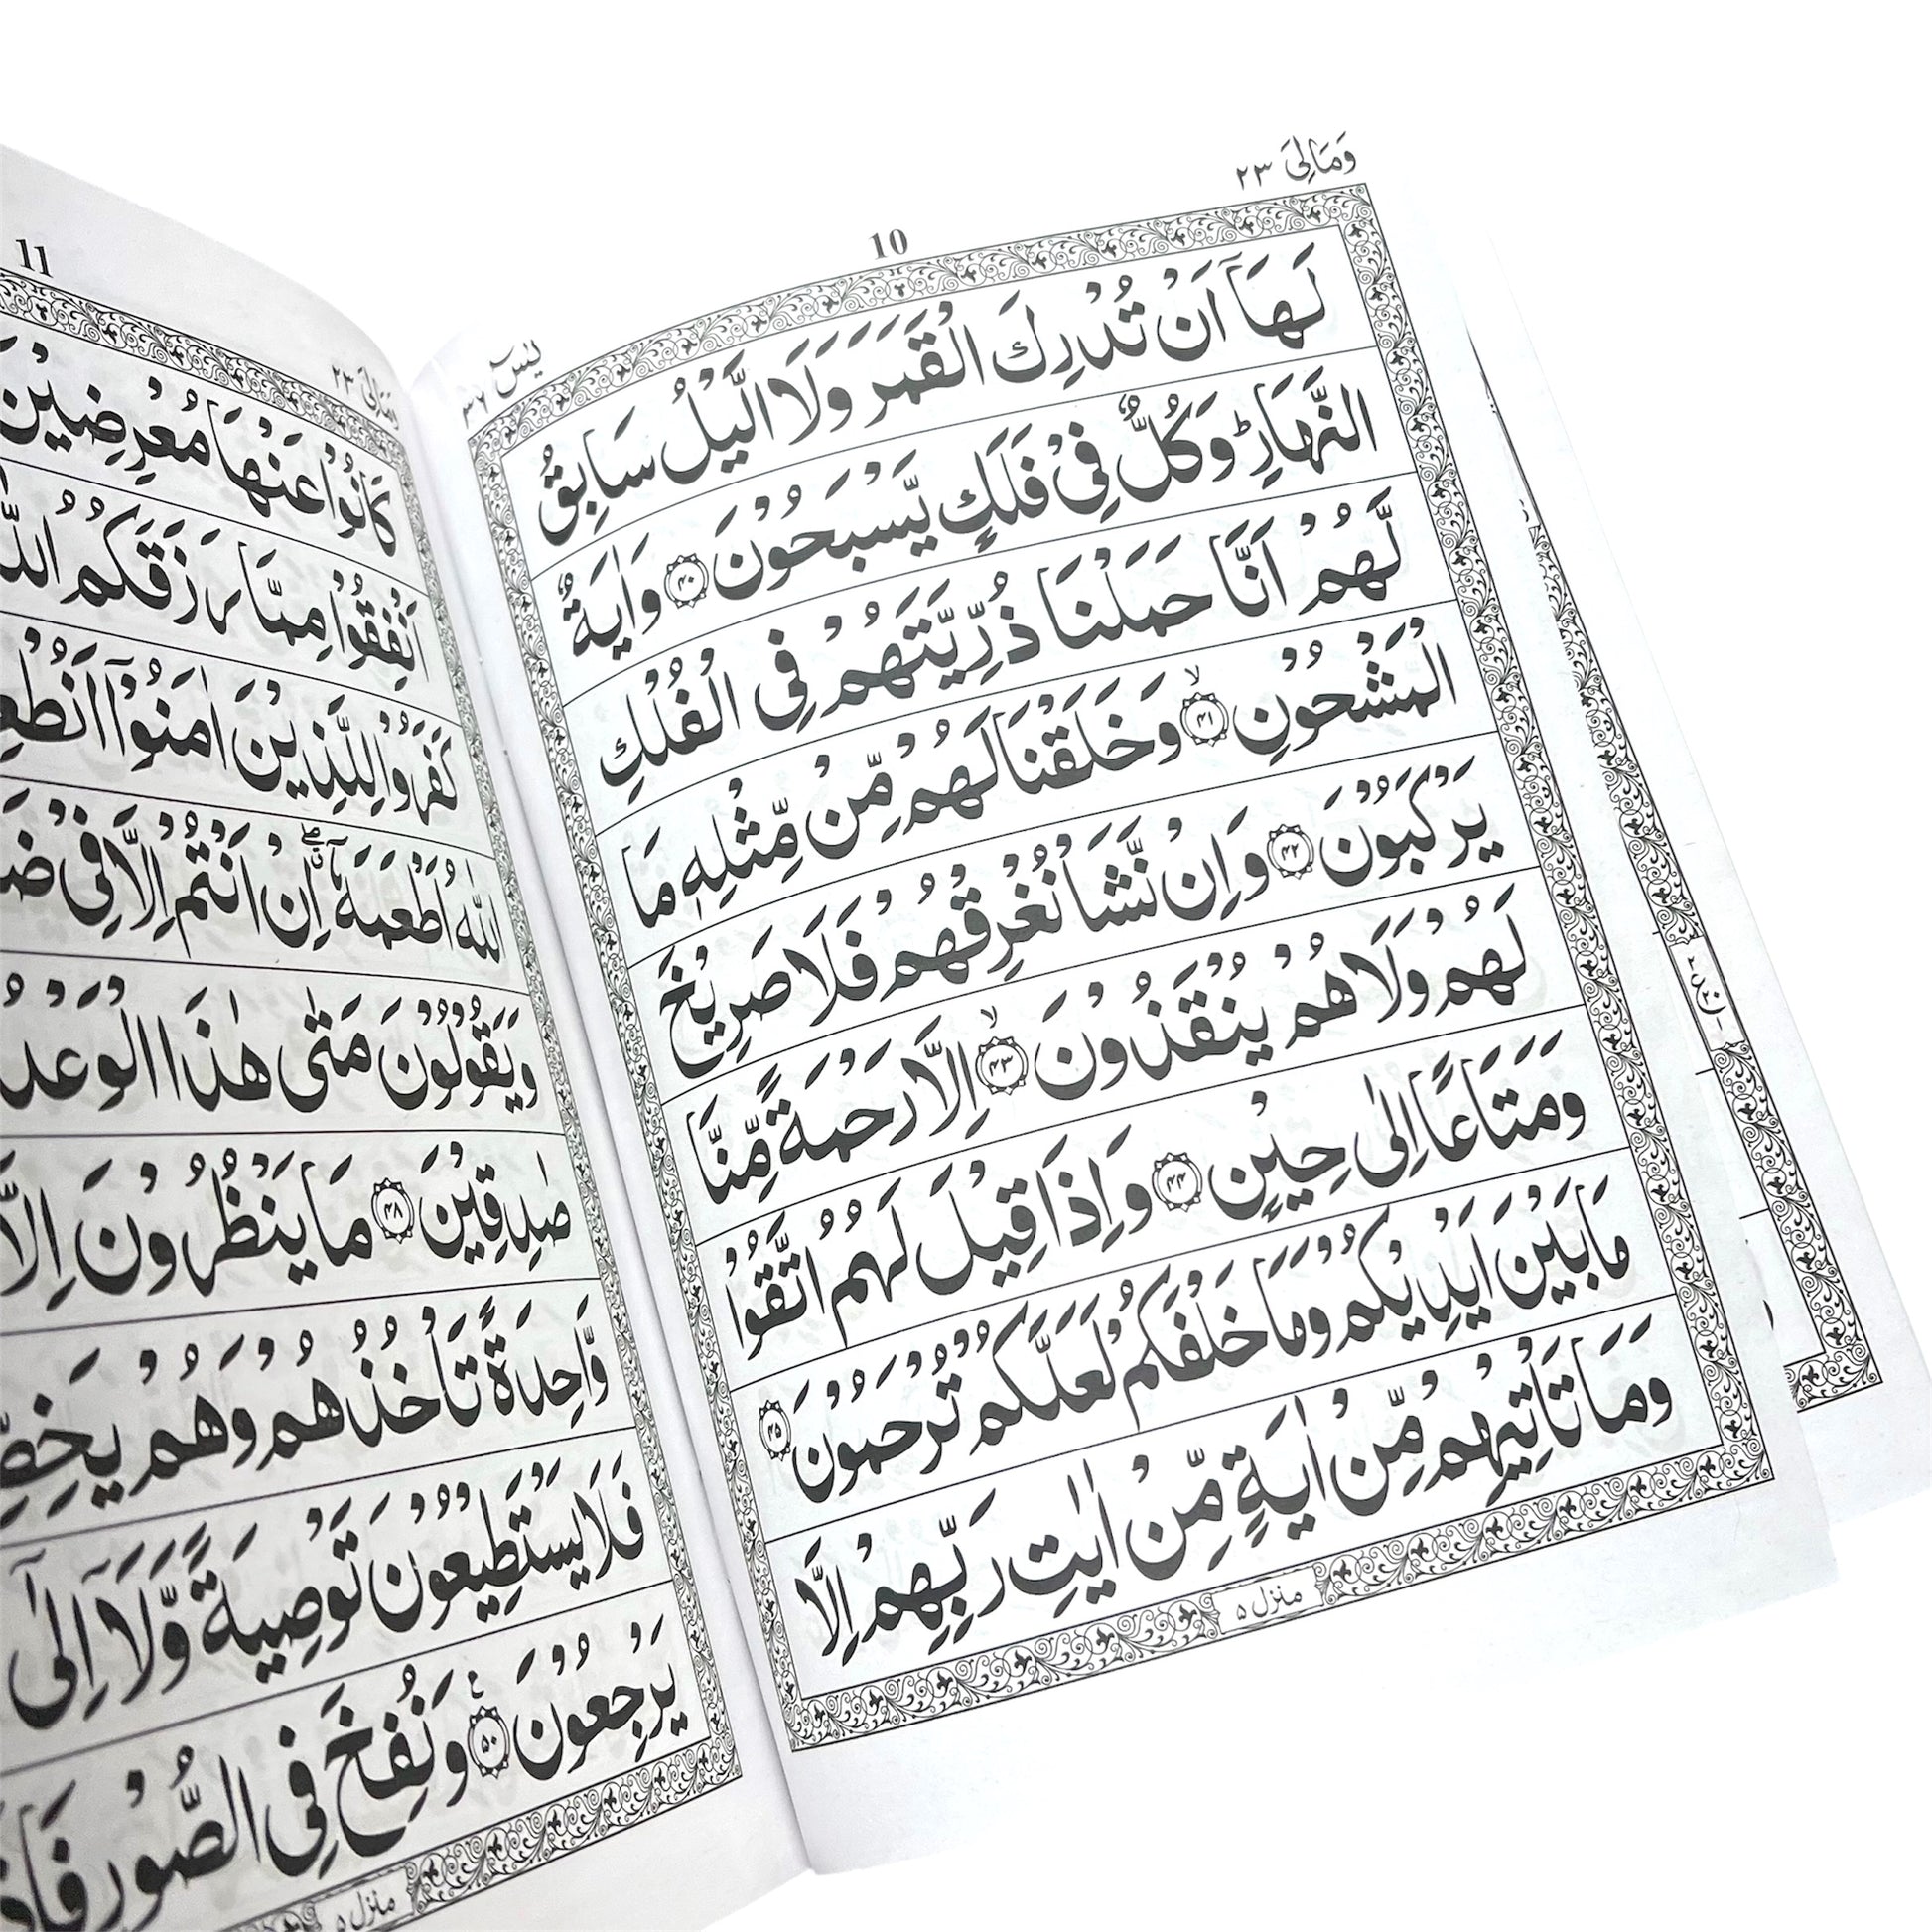 وَمَالِیَ ٢٣
10
يٰسٓ ٣٦
لَهَاۤ اَنْ تُدْرِكَ الْقَمَرَ وَلَا الَّيْلُ سَابِقُ
النَّهَارِ ؕ وَكُلٌّ فِيْ فَلَكٍ يَّسْبَحُوْنَ ﴿۴۰﴾ وَاٰيَةٌ
لَّهُمْ اَنَّا حَمَلْنَا ذُرِّيَّتَهُمْ فِي الْفُلْكِ
الْمَشْحُوْنِ ﴿۴۱﴾ ۙ وَخَلَقْنَا لَهُمْ مِّنْ مِّثْلِهٖ مَا
يَرْكَبُوْنَ ﴿۴۲﴾ وَاِنْ نَّشَاْ نُغْرِقْهُمْ فَلَا صَرِيْخَ
لَهُمْ وَلَا هُمْ يُنْقَذُوْنَ ﴿۴۳﴾ ۙ اِلَّا رَحْمَةً مِّنَّا
وَمَتَاعًا اِلٰى حِيْنٍ ﴿۴۴﴾ وَاِذَا قِيْلَ لَهُمُ اتَّقُوْا
مَا بَيْنَ اَيْدِيْكُمْ وَمَا خَلْفَكُمْ لَعَلَّكُمْ تُرْحَمُوْنَ ﴿۴۵﴾
وَمَا تَاْتِيْهِمْ مِّنْ اٰيَةٍ مِّنْ اٰيٰتِ رَبِّهِمْ اِلَّا
منزل ۵
وَمَالِیَ ٢٣
11
كَانُوْا عَنْهَا مُعْرِضِيْنَ
اَنْفِقُوْا مِمَّا رَزَقَكُمُ
كَفَرُوْا لِلَّذِيْنَ اٰمَنُوْۤا
اللّٰهُ اَطْعَمَهٗۤ ۖ اِنْ اَنْتُمْ اِلَّا فِيْ
وَيَقُوْلُوْنَ مَتٰى هٰذَا الْوَعْدُ
صٰدِقِيْنَ ﴿۴۸﴾ مَا يَنْظُرُوْنَ اِلَّا
وَّاحِدَةً تَاْخُذُهُمْ وَهُمْ
فَلَا يَسْتَطِيْعُوْنَ تَوْصِيَةً وَّلَاۤ اِلٰٓى
يَرْجِعُوْنَ ﴿۵۰﴾ ۧ وَنُفِخَ فِي الصُّوْرِ
منزل ۵